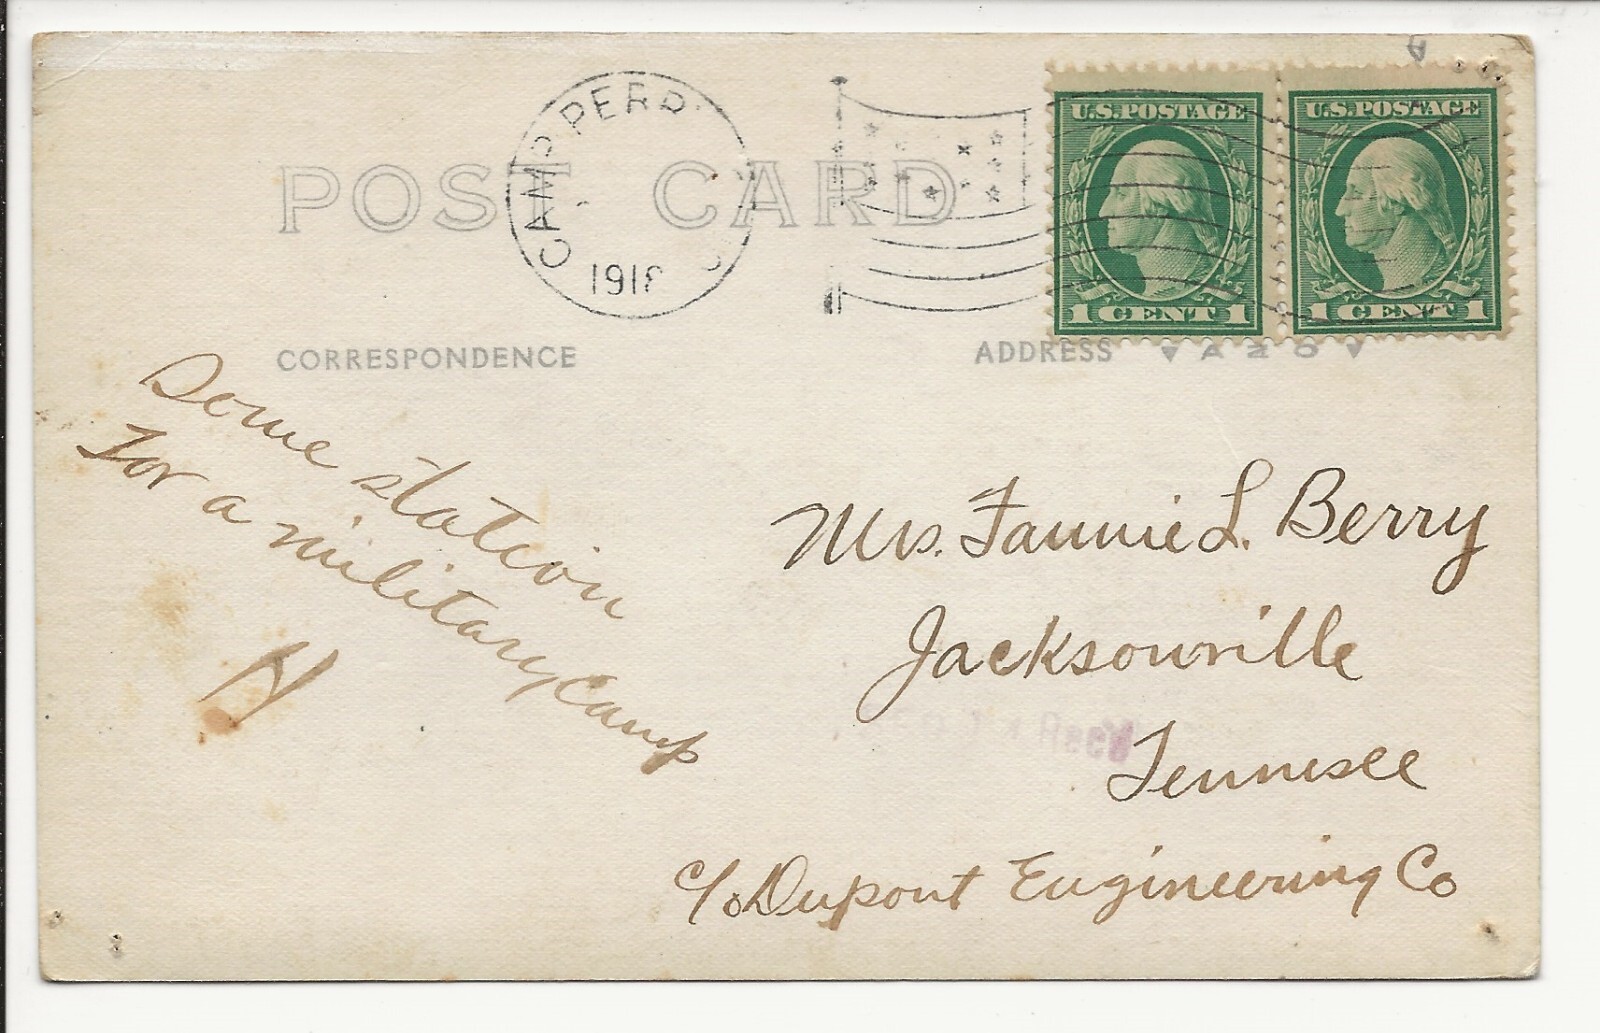 CAMP PERRY
1918
U.S. POSTAGE U.S. POSTAGE
1 CENT 1 1 CENT 1
POST CARD
CORRESPONDENCE
ADDRESS
Some station
For a military camp
H
Mrs. Fannie L. Berry
Jacksonville
Tennesee
c/o Dupont Engineering Co